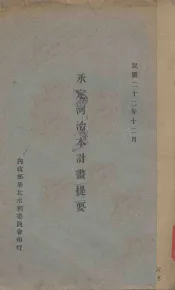 民國二十二年十二月
永定河治本計畫提要
內政部華北水利委員會印行